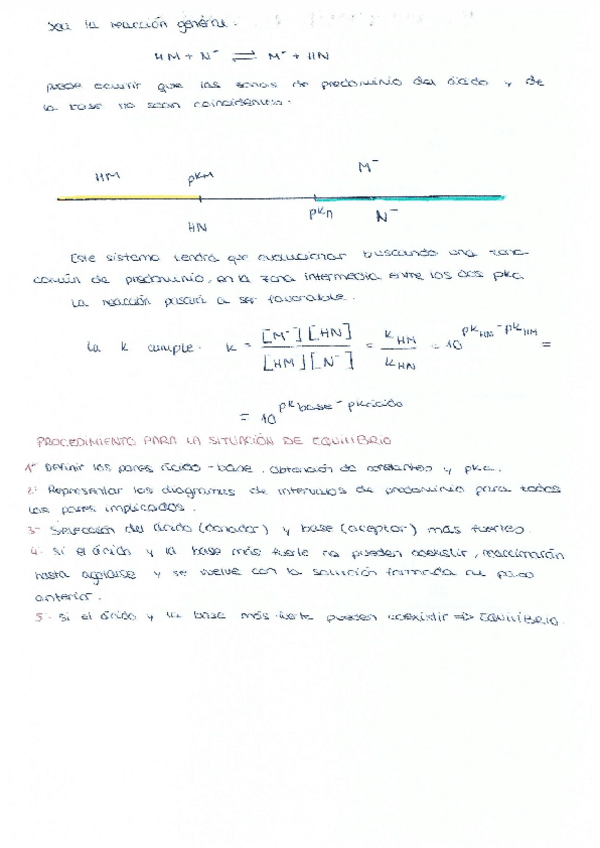 Sea la reacción general:
HM + N⁻ ⇌ M⁻ + HN
puede ocurrir que las zonas de predominio del ácido y de
la base no sean coincidentes.
HM pKM M⁻
HN pKn N⁻
Este sistema tendrá que evolucionar buscando una zona
común de predominio, en la zona intermedia entre los dos pka.
La reacción pasará a ser favorable.
La k cumple: k = [M⁻][HN] / [HM][N⁻] = KHM / KHN = 10^(pKHN - pKHM) =
= 10^(pKbase - pKácido)
PROCEDIMIENTO PARA LA SITUACIÓN DE EQUILIBRIO
1- Definir los pares ácido-base. Obtención de constantes y pka.
2- Representar los diagramas de intervalos de predominio para todos
los pares implicados.
3- Selección del ácido (donador) y base (aceptor) más fuertes.
4- Si el ácido y la base más fuerte no pueden coexistir, reaccionarán
hasta agotarse y se vuelve con la solución formada al paso
anterior.
5- Si el ácido y la base más fuerte pueden coexistir => EQUILIBRIO.